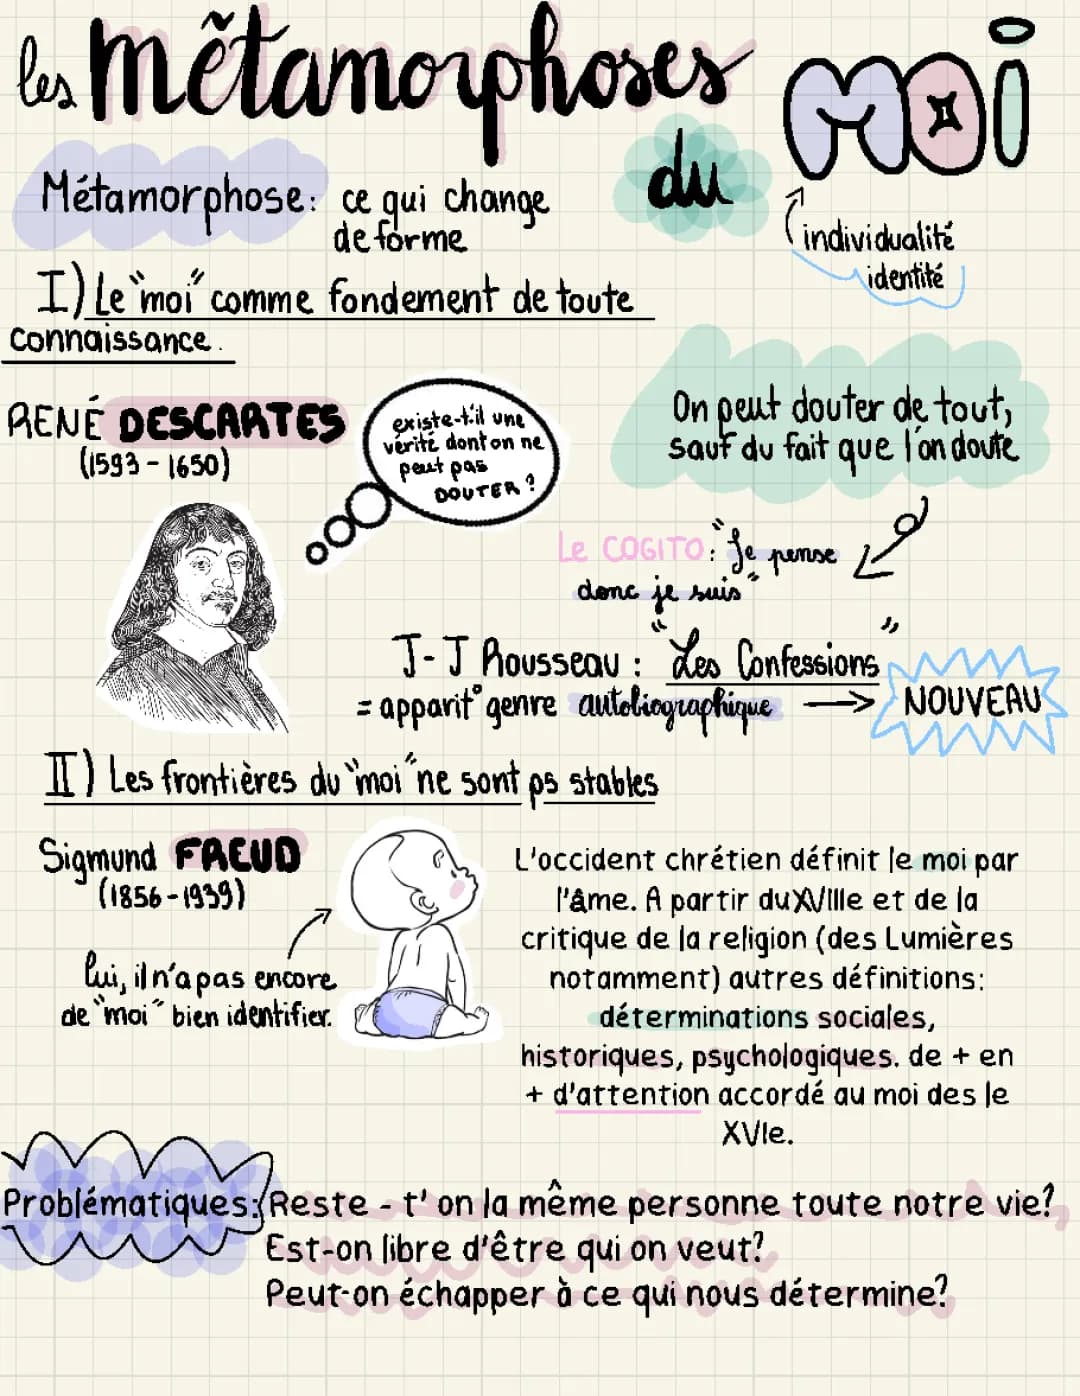 les Métamorphoses
du MOI
Métamorphose: ce qui change
de forme
individualité
identité
I) Le "moi" comme fondement de toute
connaissance.
RENÉ DESCARTES
(1593 - 1650)
existe-t'il une
vérité dont on ne
peut pas
DOUTER ?
On peut douter de tout,
sauf du fait que l'on doute
Le COGITO: "Je pense
donc je suis"
J-J Rousseau : "Les Confessions"
= apparit° genre autobiographique → NOUVEAU
II) Les frontières du "moi" ne sont ps stables
Sigmund FREUD
(1856-1939)
lui, il n'a pas encore
de "moi" bien identifier.
L'occident chrétien définit le moi par
l'âme. A partir du XVIIIe et de la
critique de la religion (des Lumières
notamment) autres définitions:
déterminations sociales,
historiques, psychologiques. de + en
+ d'attention accordé au moi des le
XVIe.
Problématiques: Reste - t'on la même personne toute notre vie?
Est-on libre d'être qui on veut?
Peut-on échapper à ce qui nous détermine?